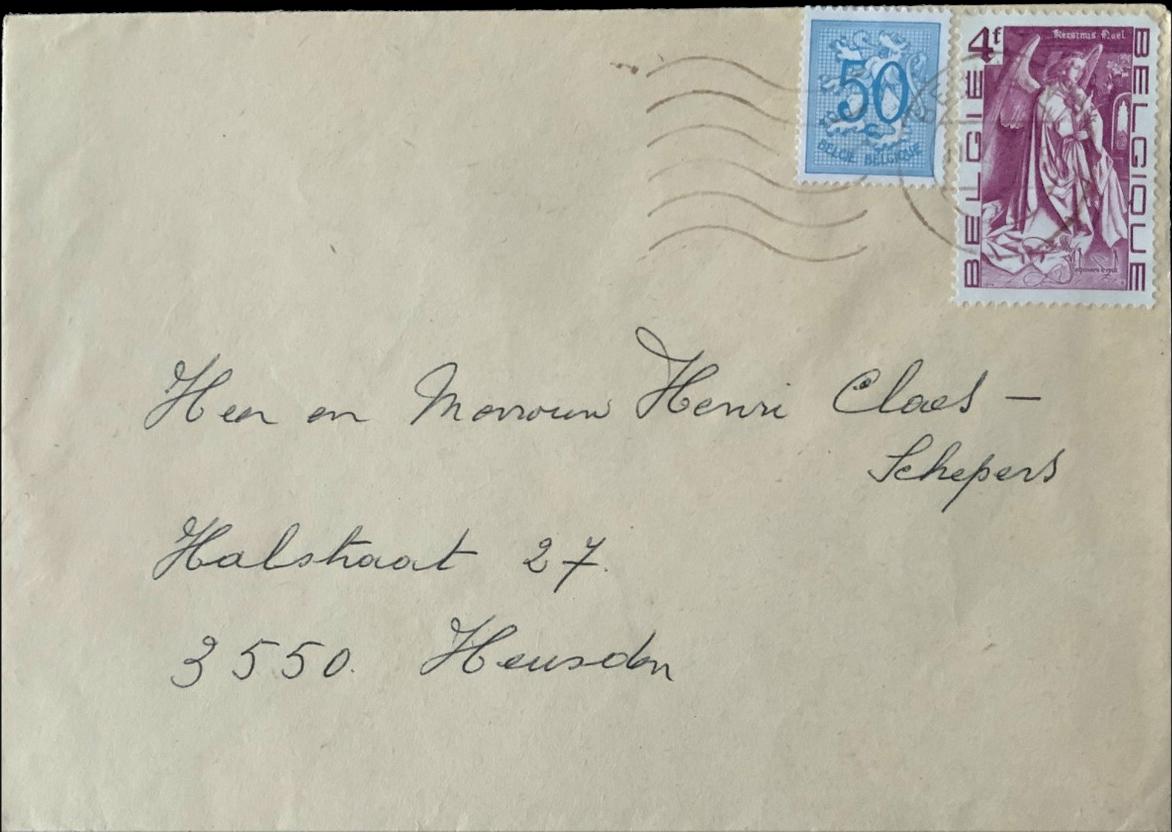 50
BELGIE BELGIQUE
4F
Kerstmis Noel
BELGIE
BELGIQUE
Heer en Mevrouw Henri Claes –
Schepers
Halstraat 27.
3550. Heusden